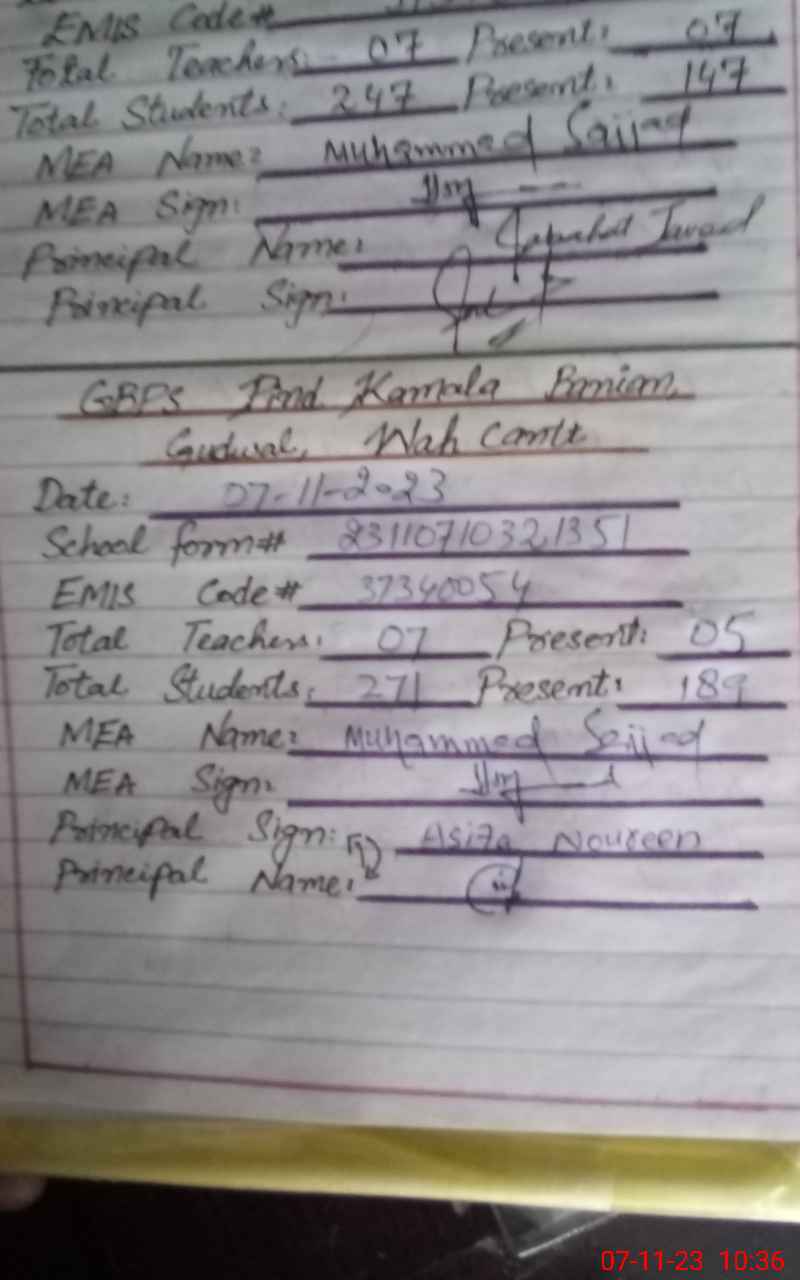 EMIS Code#
Total Teachers: 07 Present: 07
Total Students: 247 Present: 147
MEA Name: Muhammed Sajjad
MEA Sign:
Principal Name: Javed
Principal Sign:
GBPS Pind Kamala
Gudwal, Wah Cantt
Date: 07-11-2023
School form# 2311071032,1351
EMIS Code# 37340054
Total Teachers: 07 Present: 05
Total Students: 271 Present: 189
MEA Name: Muhammed Sajjad
MEA Sign:
Principal Sign: Asifa Noureen
Principal Name:
07-11-23 10:36